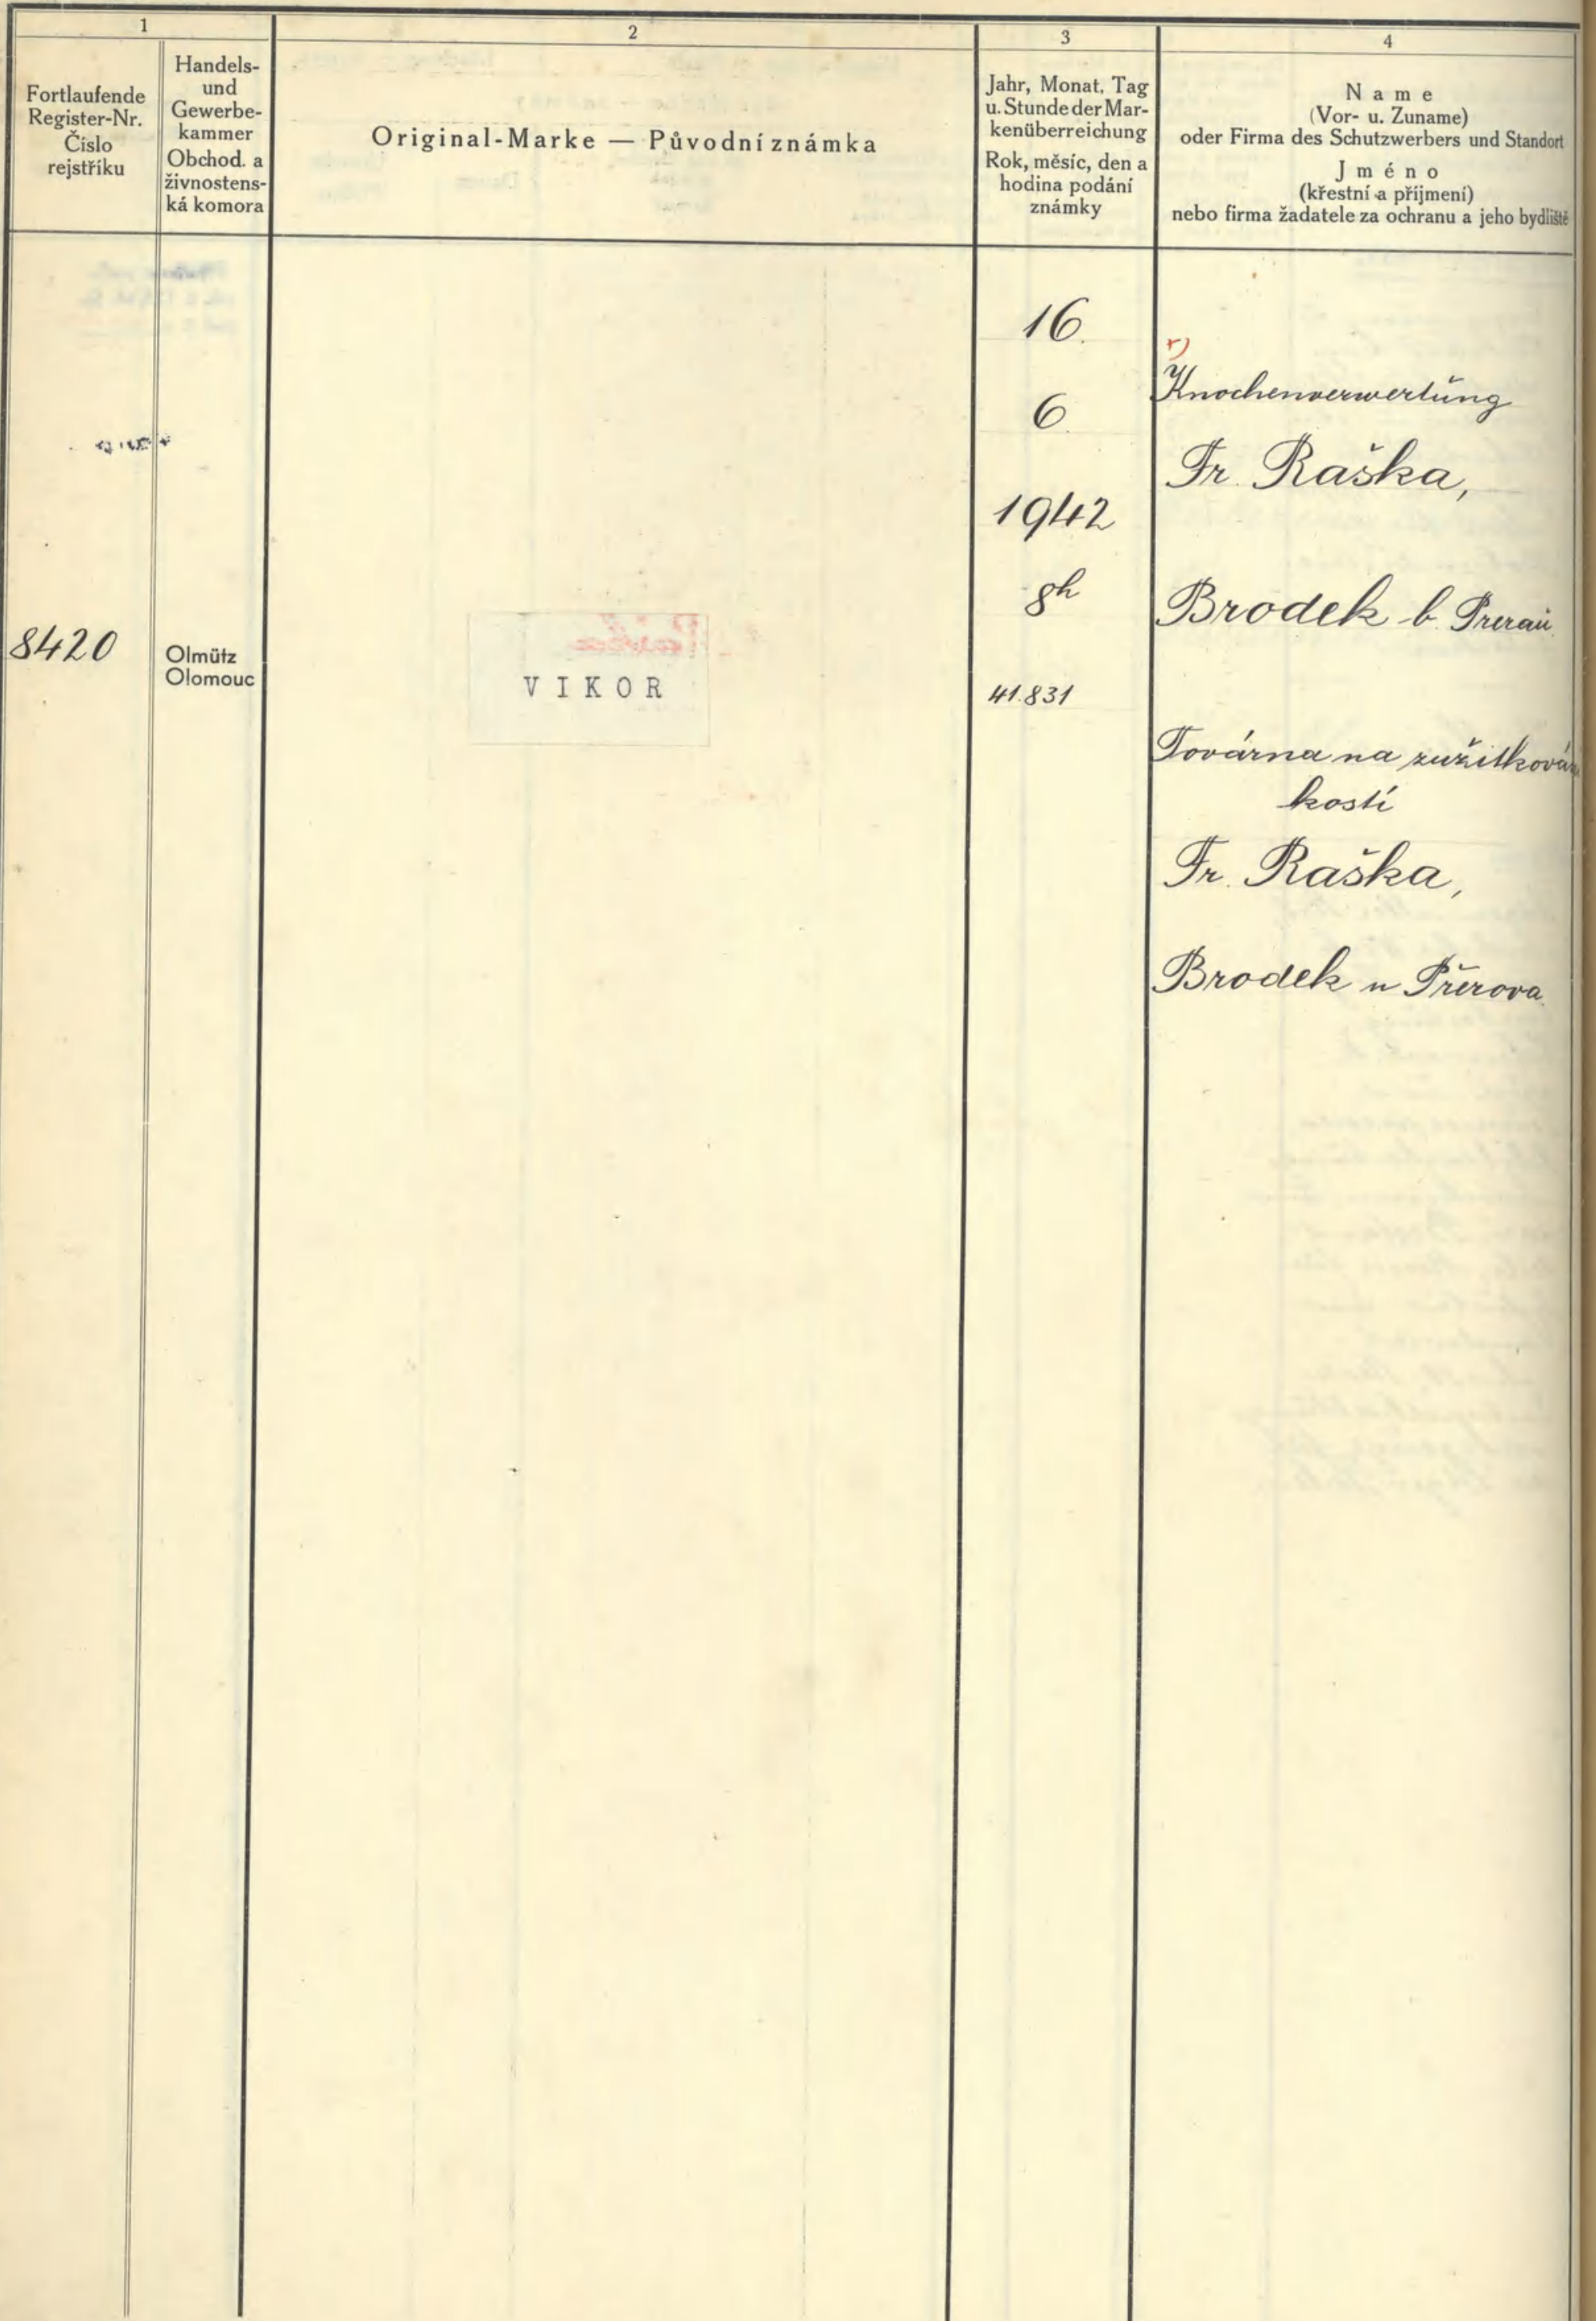 1
Fortlaufende
Register-Nr.
Číslo
rejstříku
Handels-
und
Gewerbe-
kammer
Obchod. a
živnostens-
ká komora
2
Original-Marke — Původní známka
3
Jahr, Monat, Tag
u. Stunde der Mar-
kenüberreichung
Rok, měsíc, den a
hodina podání
známky
4
Name
(Vor- u. Zuname)
oder Firma des Schutzwerbers und Standort
Jméno
(křestní a příjmení)
nebo firma žadatele za ochranu a jeho bydliště
8420
Olmütz
Olomouc
VIKOR
16.
6.
1942
8h
41.831
Knochenverwertung
Fr. Raška,
Brodek b. Prerau.
Továrna na zužitková
kostí
Fr. Raška,
Brodek u Přerova.